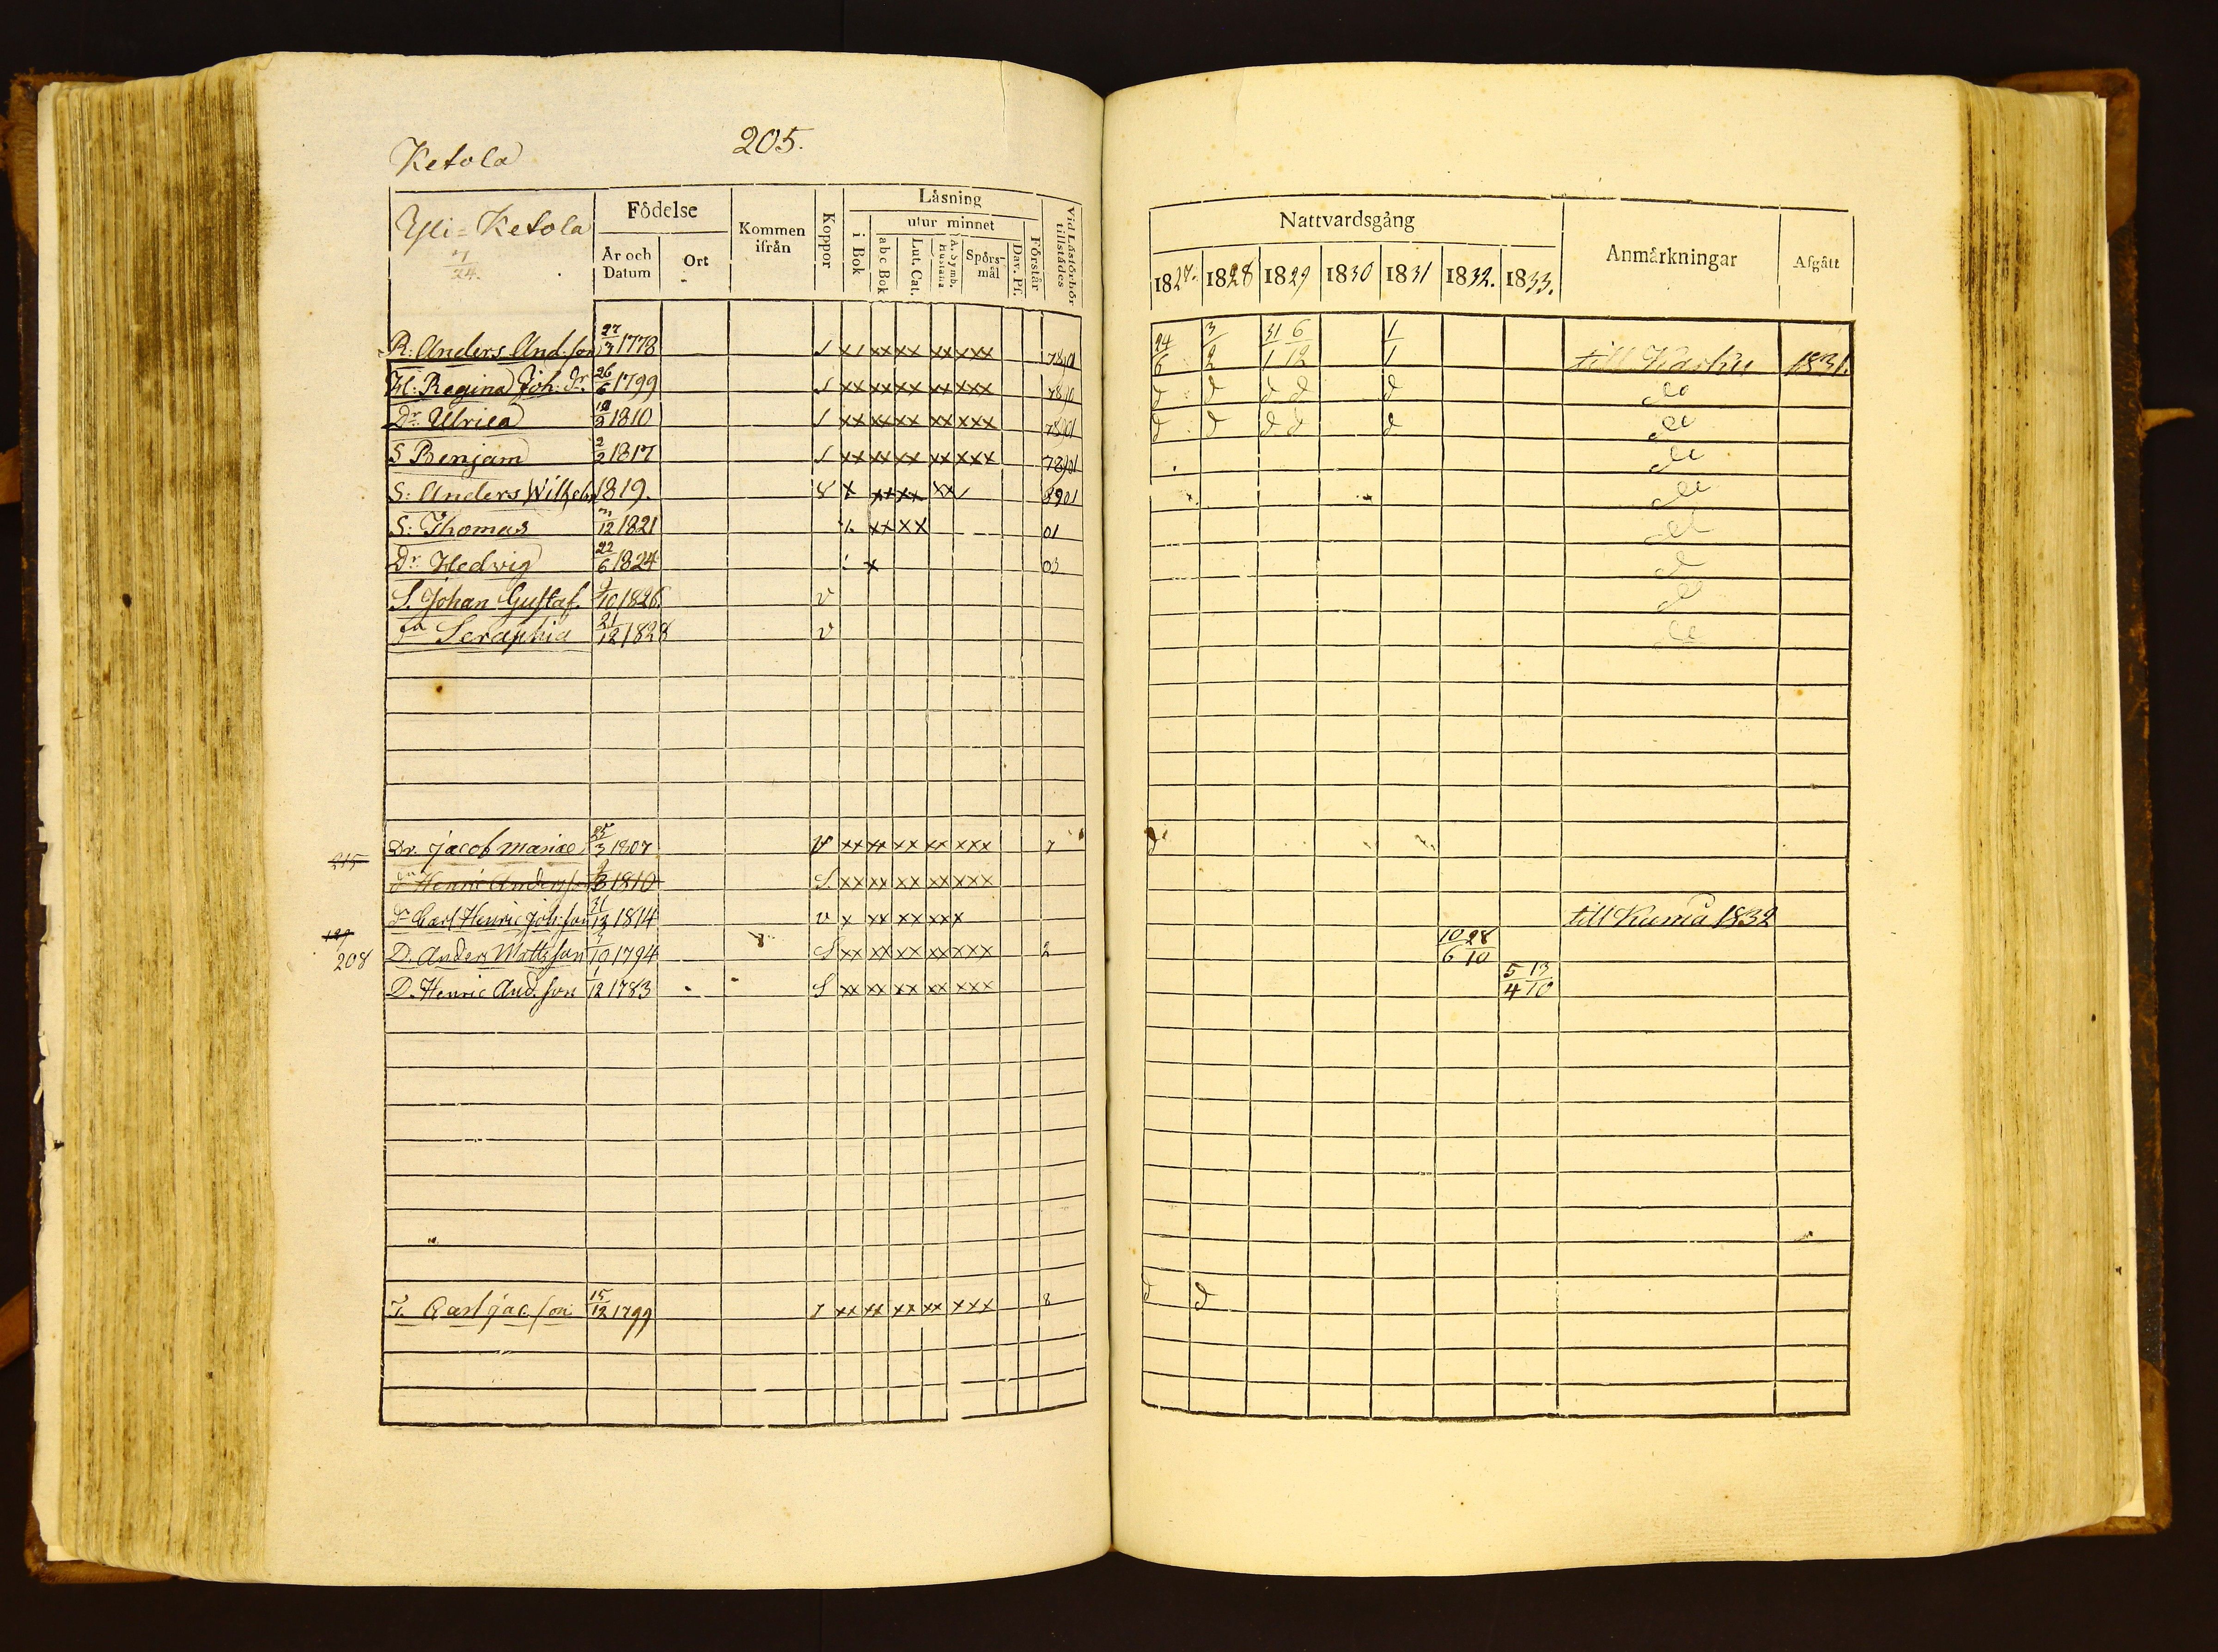 Ketola 205.
Yli=Ketola
7/24.
Födelse
År och Datum
Ort
Kommen ifrån
Koppor
Läsning
i Bok
utur minnet
abc Bok
Lut. Cat.
A. Symb. Hustafla
Spörs-mål
Dav. Ps.
Förstår
Vid Läsförhör tillstådes
Nattvardsgång
1827. 1828 1829 1830 1831 1832. 1833.
Anmärkningar
Afgått
R: Anders And:son 27/3 1778 24/6 3/2 31/1 6/12 1/1 till Karku 1831.
H: Regina Joh: dr. 26/6 1799 xx xx xx xx xxx d d d d d do
Dr. Ulrica 12/2 1810 xx xx xx xx xxx d d d d d do
S Benjam 2/2 1817 xx xx xx xx xxx do
S: Anders Wilhelm 1819. x xx xx xx 8901 do
S: Thomas 12 1821 xx xx 01 do
Dr Hedvig 22/6 1824 x 03 do
S. Johan Gustaf. 10 1826. v do
Seraphia 21/12 1828 v do
Dr. Jacob Mariae 25/3 1807 v xx xx xx xx xxx 7 d
215 Dr Henric Andersson 3 1810 S. xx xx xx xx xxx
Dr Carl Henric Joh:son 31/12 1814 v x xx xx xxx till Kumå 1832
189
208 D. Anders Mattsson 10 1794 S xx xx xx xx xxx 2 10/6 28/10
D. Henric And.son 12 1783 S xx xx xx xx xxx 5/4 13/10
Carl Jac.son 15/12 1799 xx xx xx xx xxx 8 d d